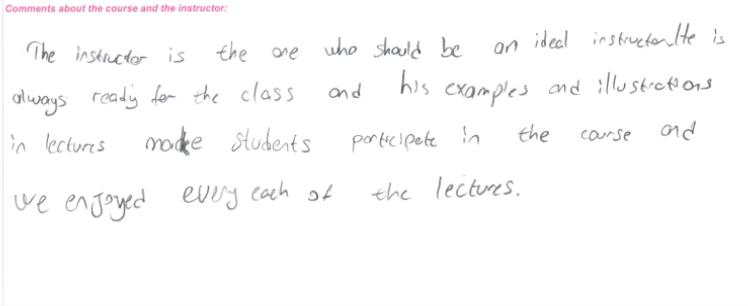 Comments about the course and the instructor:
The instructor is the one who should be an ideal instructor. He is
always ready for the class and his examples and illustrations
in lectures make students participate in the course and
we enjoyed every each of the lectures.